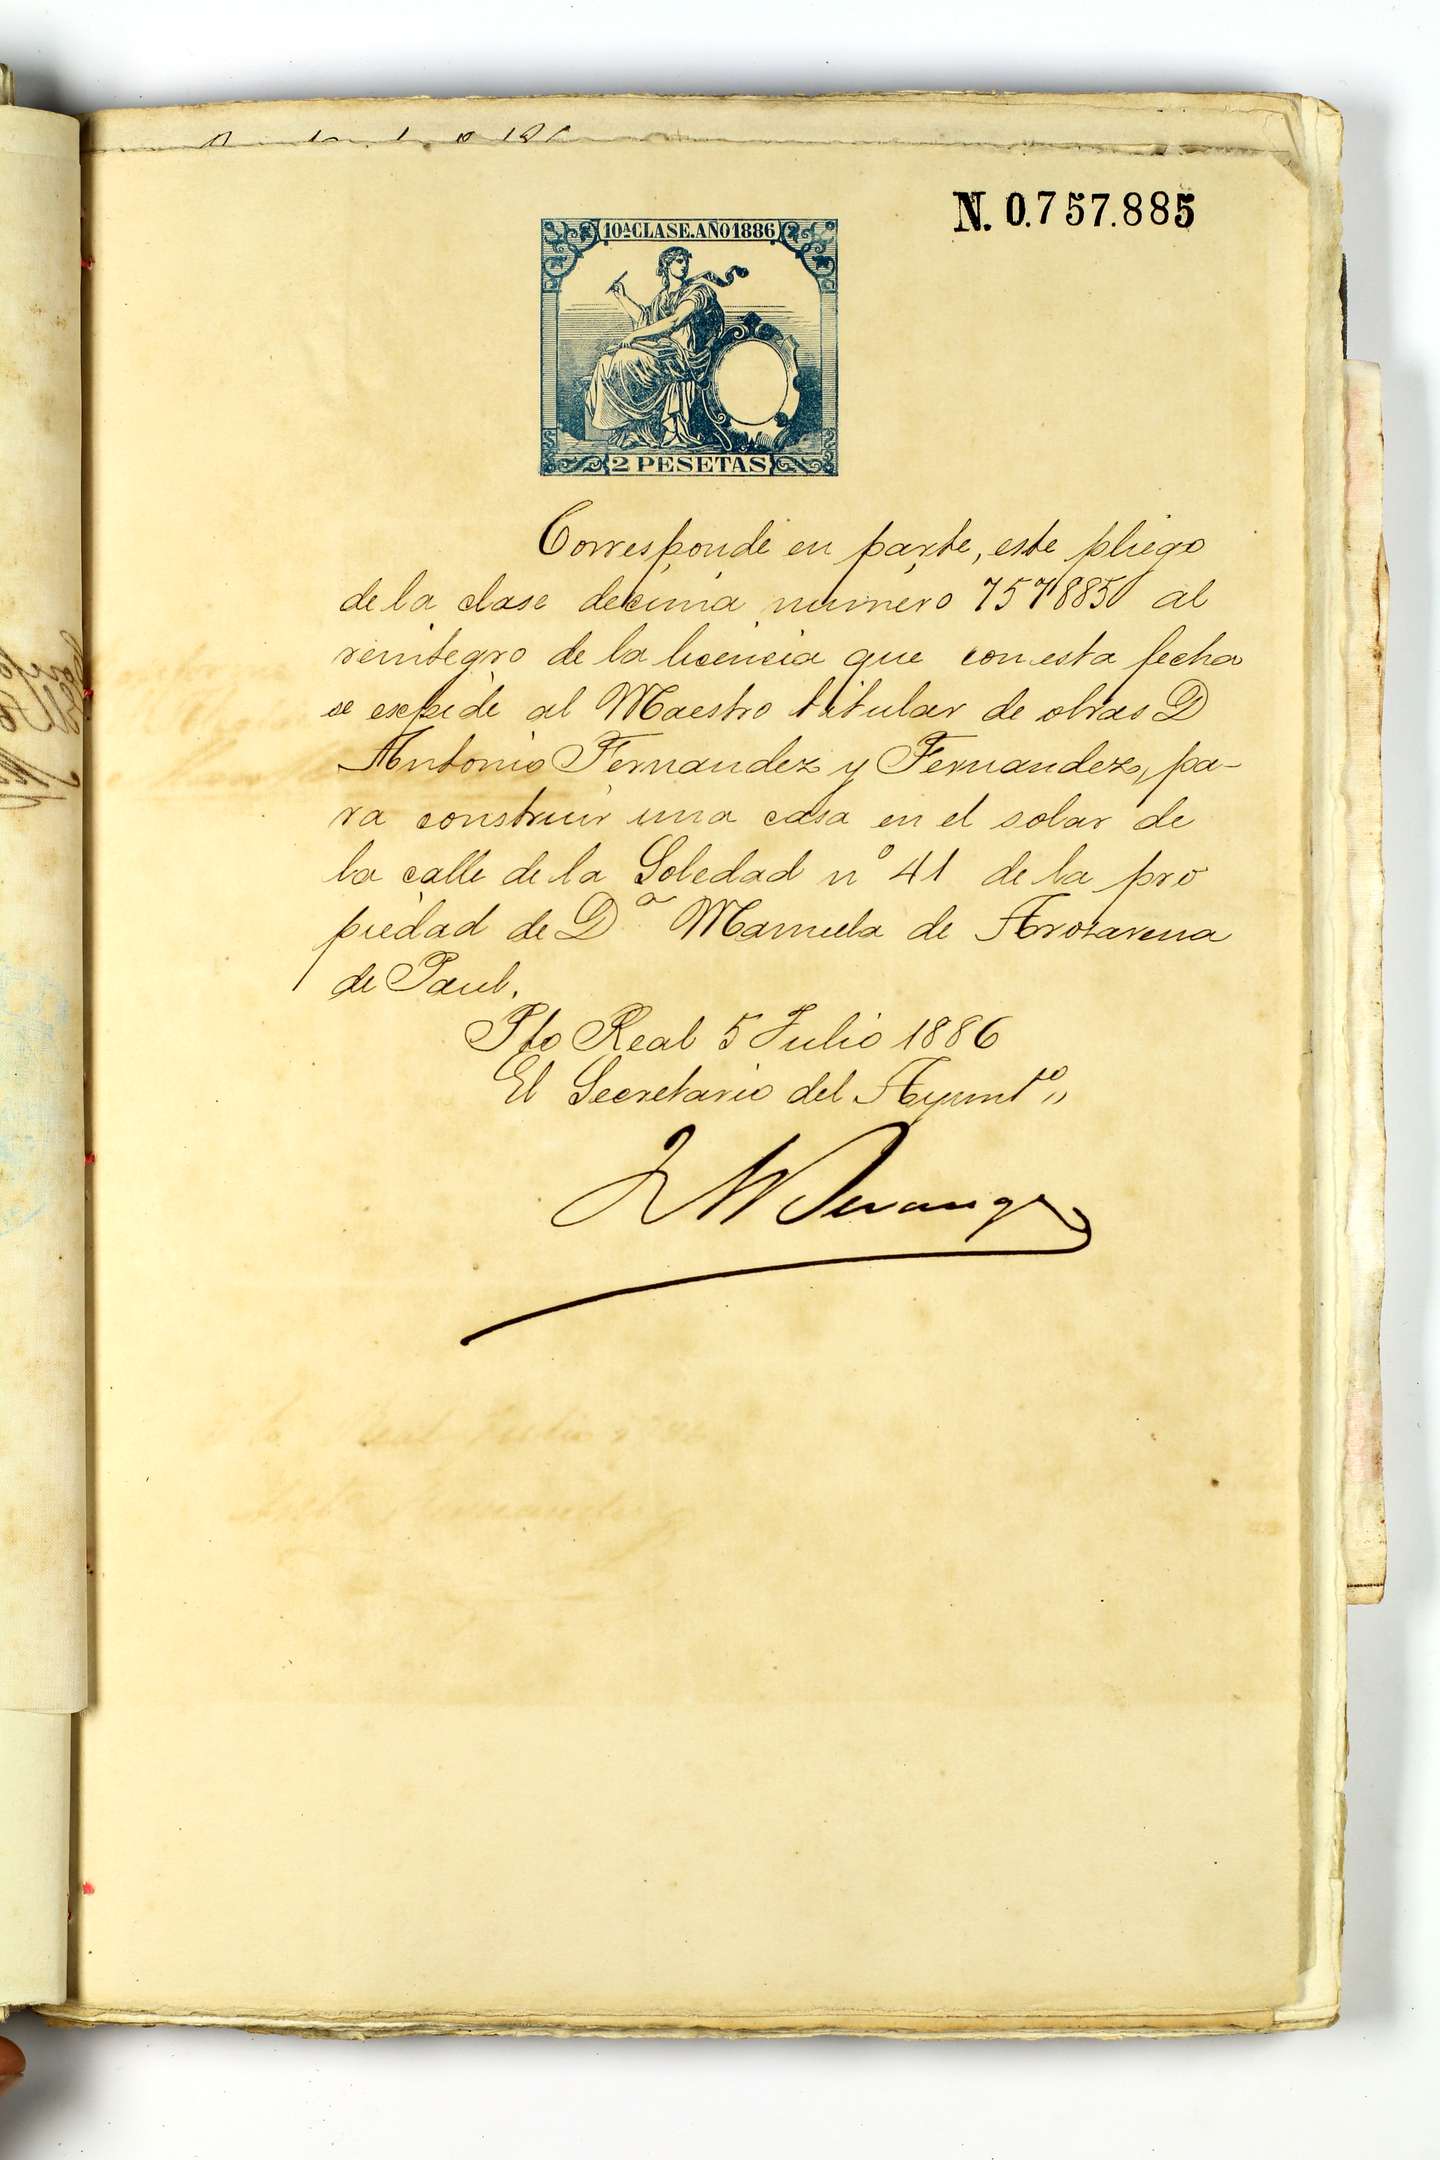 N. 0.757.885
10ª CLASE. AÑO 1886
2 PESETAS
Corresponde en parte, este pliego
de la clase decima numero 757885 al
reintegro de la licencia que con esta fecha
se expide al Maestro titular de obras D
Antonio Fernandez y Fernandez, pa-
ra construir una casa en el solar de
la calle de la Soledad nº 41 de la pro
piedad de Dª Manuela de Arozarena
de Paul.
Pto Real 5 Julio 1886
El Secretario del Ayuntº